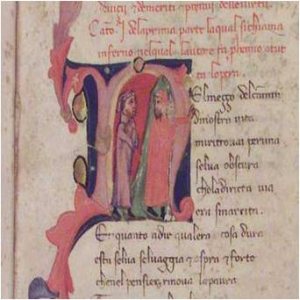 Canto J. dela prima parte laqual sichiama
inferno nelqual lautore fa prohemio a tut
ta lopera
El meçço del camin
di nostra uita
mi ritrouai per una
selua obscura
che la diricta uia
era smarrita.
Et quanto a dir qual era e cosa dura
esta selua seluaggia et aspra et forte
che nel pensier rinoua la paura